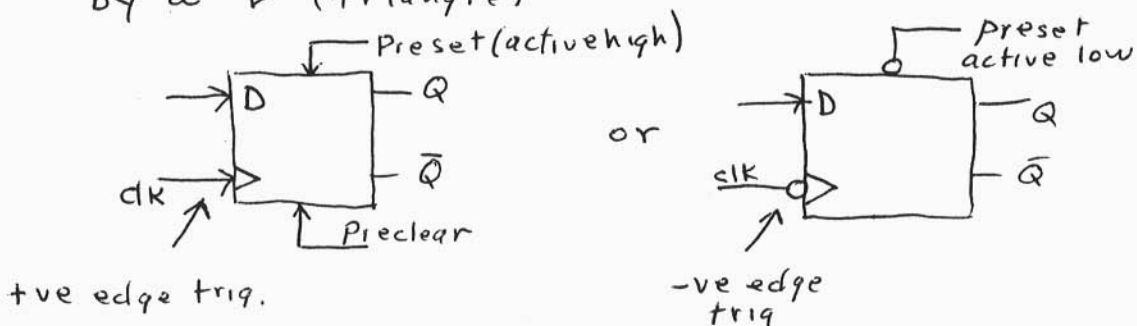 by a ▷ (triangle)
Preset (active high)
D
Q
clk
Q̄
Preclear
+ve edge trig.
or
preset
active low
D
Q
clk
Q̄
-ve edge
trig